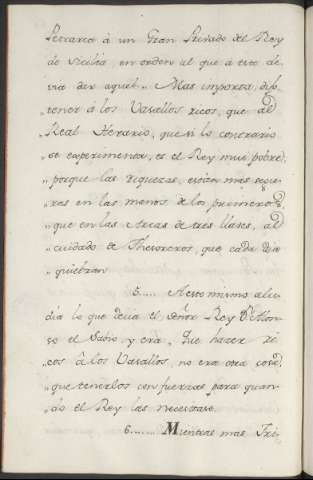 Petrarca à un Gran Privado del Rey
de Sicilia, en orden al que à este de-
via ser aquel „ Mas importa, dis-
„tener à los Vasallos ricos, que al
„Real Herario, que si lo contrario
„se experimentar, es el Rey mui pobre,
„porque las riquezas, estan mas segu-
„ras en las manos de los primeros,
„que en las Arcas de tres llaves, al
„cuidado de Thesoreros, que cada dia
„quiebran
5..... A esto mismo alu-
dia lo que decia el Señor Rey Dn Alon-
so el Sabio, y era, Que hacer ri-
„cos à los Vasallos, no era otra cosa,
„que tenerlos con fuerzas para quan-
„do el Rey las necesitase.
6....... Mientras mas Fri-